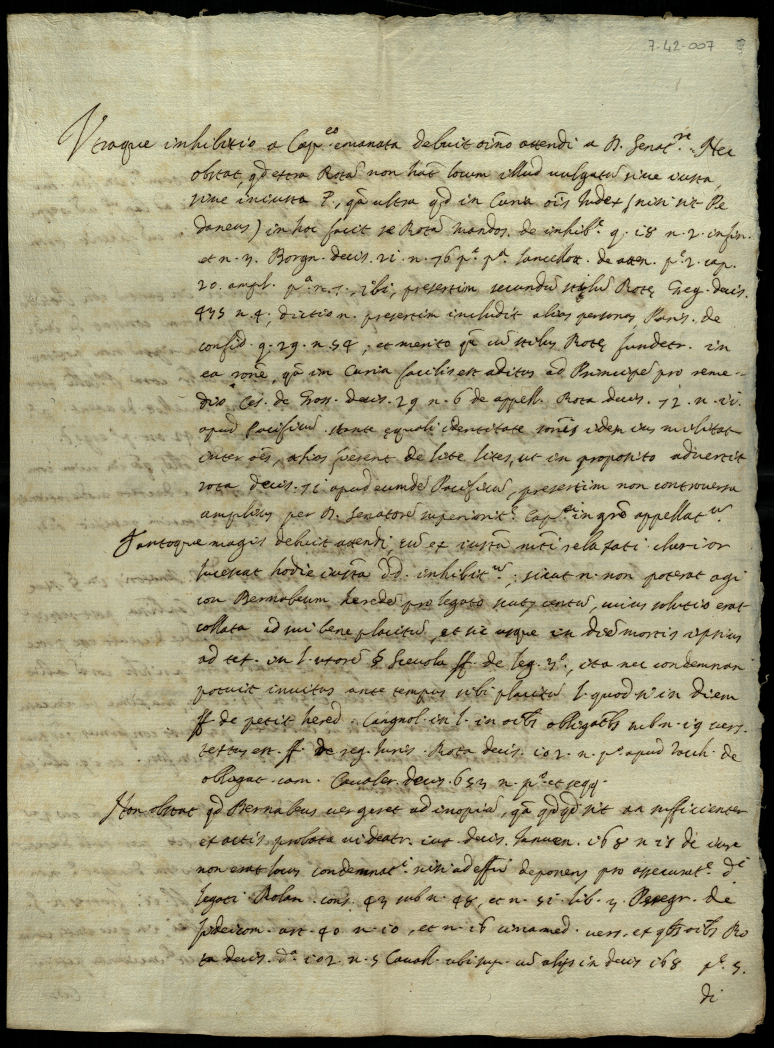 7-42-007
Utraque inhibitio a Cap.eo emanata debuit oīno attendi a D. Senat.re Nec
obstat, qd extra Rotā non hāt locum illud vulgatū sive iusta,
sive iniusta &, qā ultra qd in Curia oīs Iudex (nisi sit Pe
daneus) in hoc facit se Rotā Mandos. de inhib.e q. 18 n. 2. in fin.
et n. 3. Borgn. decis. 21. n. 76 p.e p.a Lancellott. de atten. p.e 2. cap.
20. ampl. p.a n. 7. ibi, presertim secundū stylū Rotę Greg. decis.
435 n. 4, dictio n. presertim includit alias personas Paris. de
confid. q. 29. n. 54, et merito qā cū stilus Rotę fundetr. in
ea rōne, qā in Curia facilis est aditus ad Principē pro reme-
dio Ces. de Grass. decis. 29 n. 6 de appell. Rota decis. 72. n. 11.
apud Pacificū stante ęquali identitate rōnis idem ius militat
inter oēs, alias fierent de lite lites, ut in proposito advertit
rota decis. 71 apud eumdē Pacificū, presertim non controversa
amplius per D. Senatorē superiorit.e Cap. in grē appellat.
Tantoque magis debuit attendi, cū ex iusta relaxati clarior
lucescat hodie iusta d.d. inhibit.; sicut n. non poterat agi
con Bernabeum heredē pro legato scut. centū, cuius solutio erat
collata ad sui bene placitū, et sic usque in diē mortis ipsius
ad tex. in l. utorē § Scevola ff. de leg. 3.o, ita nec condemnari
potuit invitus ante tempus sibi placitū l. quod si in diem
ff. de petit. hered. Cagnol. in l. in oībs obligatbs sub n. 19 vers.
textus est. ff. de reg. Iuris. Rota decis. 102. n. p.o apud de
obligat. cam. Cavaler. decis. 653 n. p.o et seqq.
Non obstat qd Bernabeus vergeret ad inopiā, qā qdqd sit an sufficienter
ex actis probata videatr. iux. decis. Ianuen. 168 n. 18 de iure
non erat locus condemnat.i nisi ad effū deponens pro assecurat.e d.i
legati Rolan. cons. 43 sub n. 48, et n. 51. lib. 3. Peregr. de
fideicom. art. 40 n. 10, et n. 16 vers. et Ro
ta decis. d.a 102. n. 5 Cavall. ubi sup. cū alijs in decis 168 p.e 5.
di